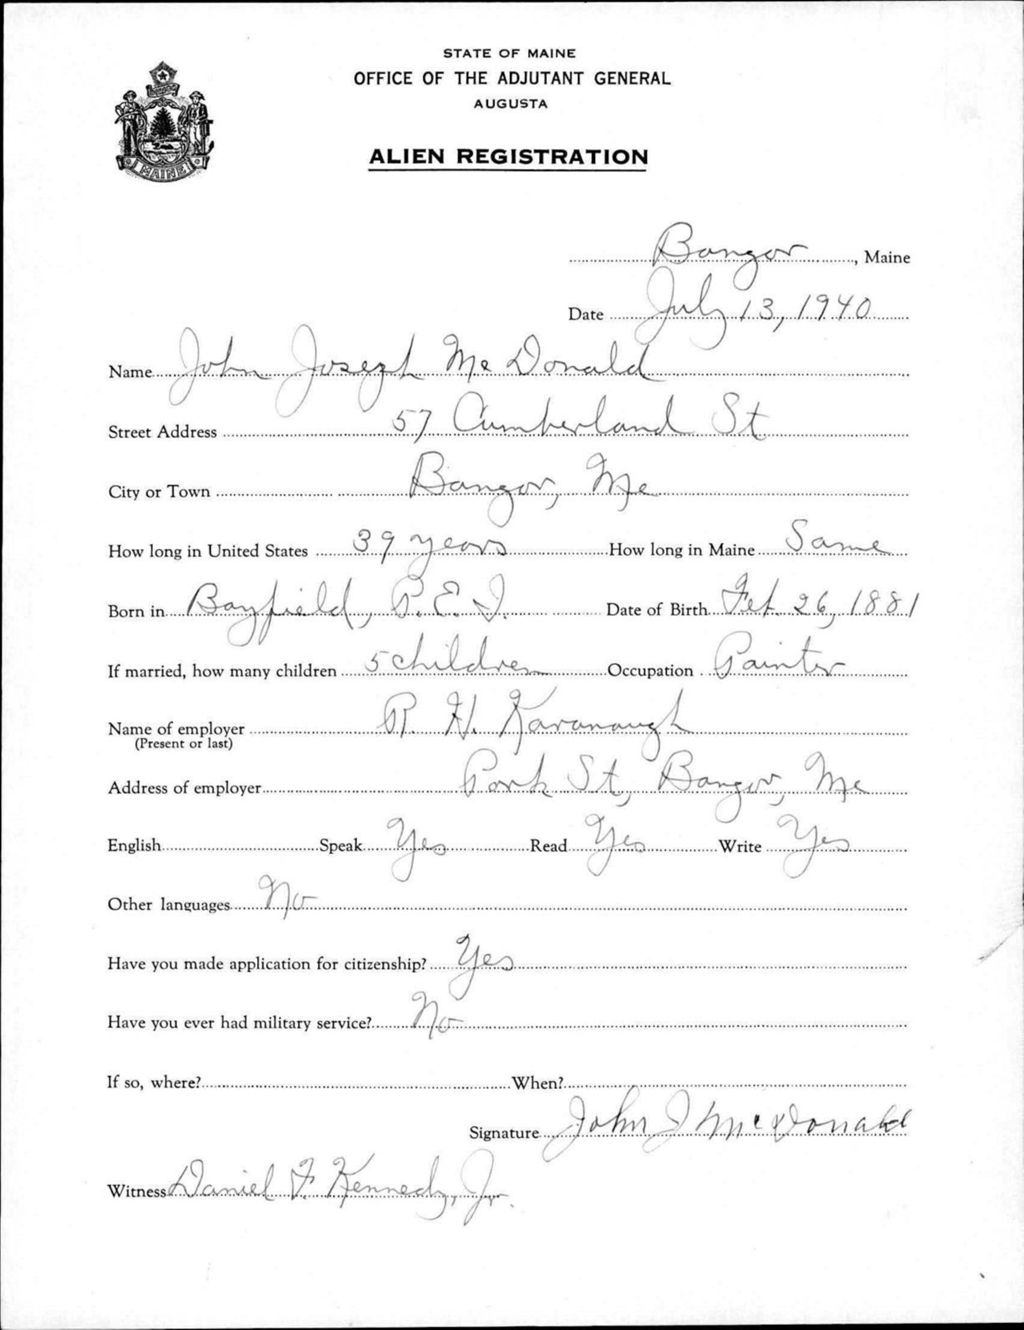 STATE OF MAINE
OFFICE OF THE ADJUTANT GENERAL
AUGUSTA
ALIEN REGISTRATION
MAINE
Bangor, Maine
Date July 13, 1940
Name John Joseph McDonald
Street Address 57 Cumberland St
City or Town Bangor, Me
How long in United States 39 years How long in Maine Same
Born in Bayfield, P.E.I. Date of Birth Feb. 26, 1881
If married, how many children 5 children Occupation Painter
Name of employer R. H. Kavanaugh
(Present or last)
Address of employer Park St, Bangor, Me
English Speak Yes Read Yes Write Yes
Other languages No
Have you made application for citizenship? Yes
Have you ever had military service? No
If so, where? When?
Signature John J McDonald
Witness Daniel F. Kennedy, Jr.